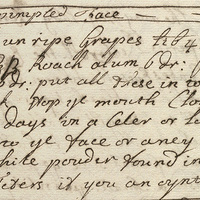 pimpled Face
un ripe Grapes
Roach alum 6 dr:
dr: put all these in
stop ye mouth Clo
days in a Celer or
ye face or aney
white powder found in
if you an oynt